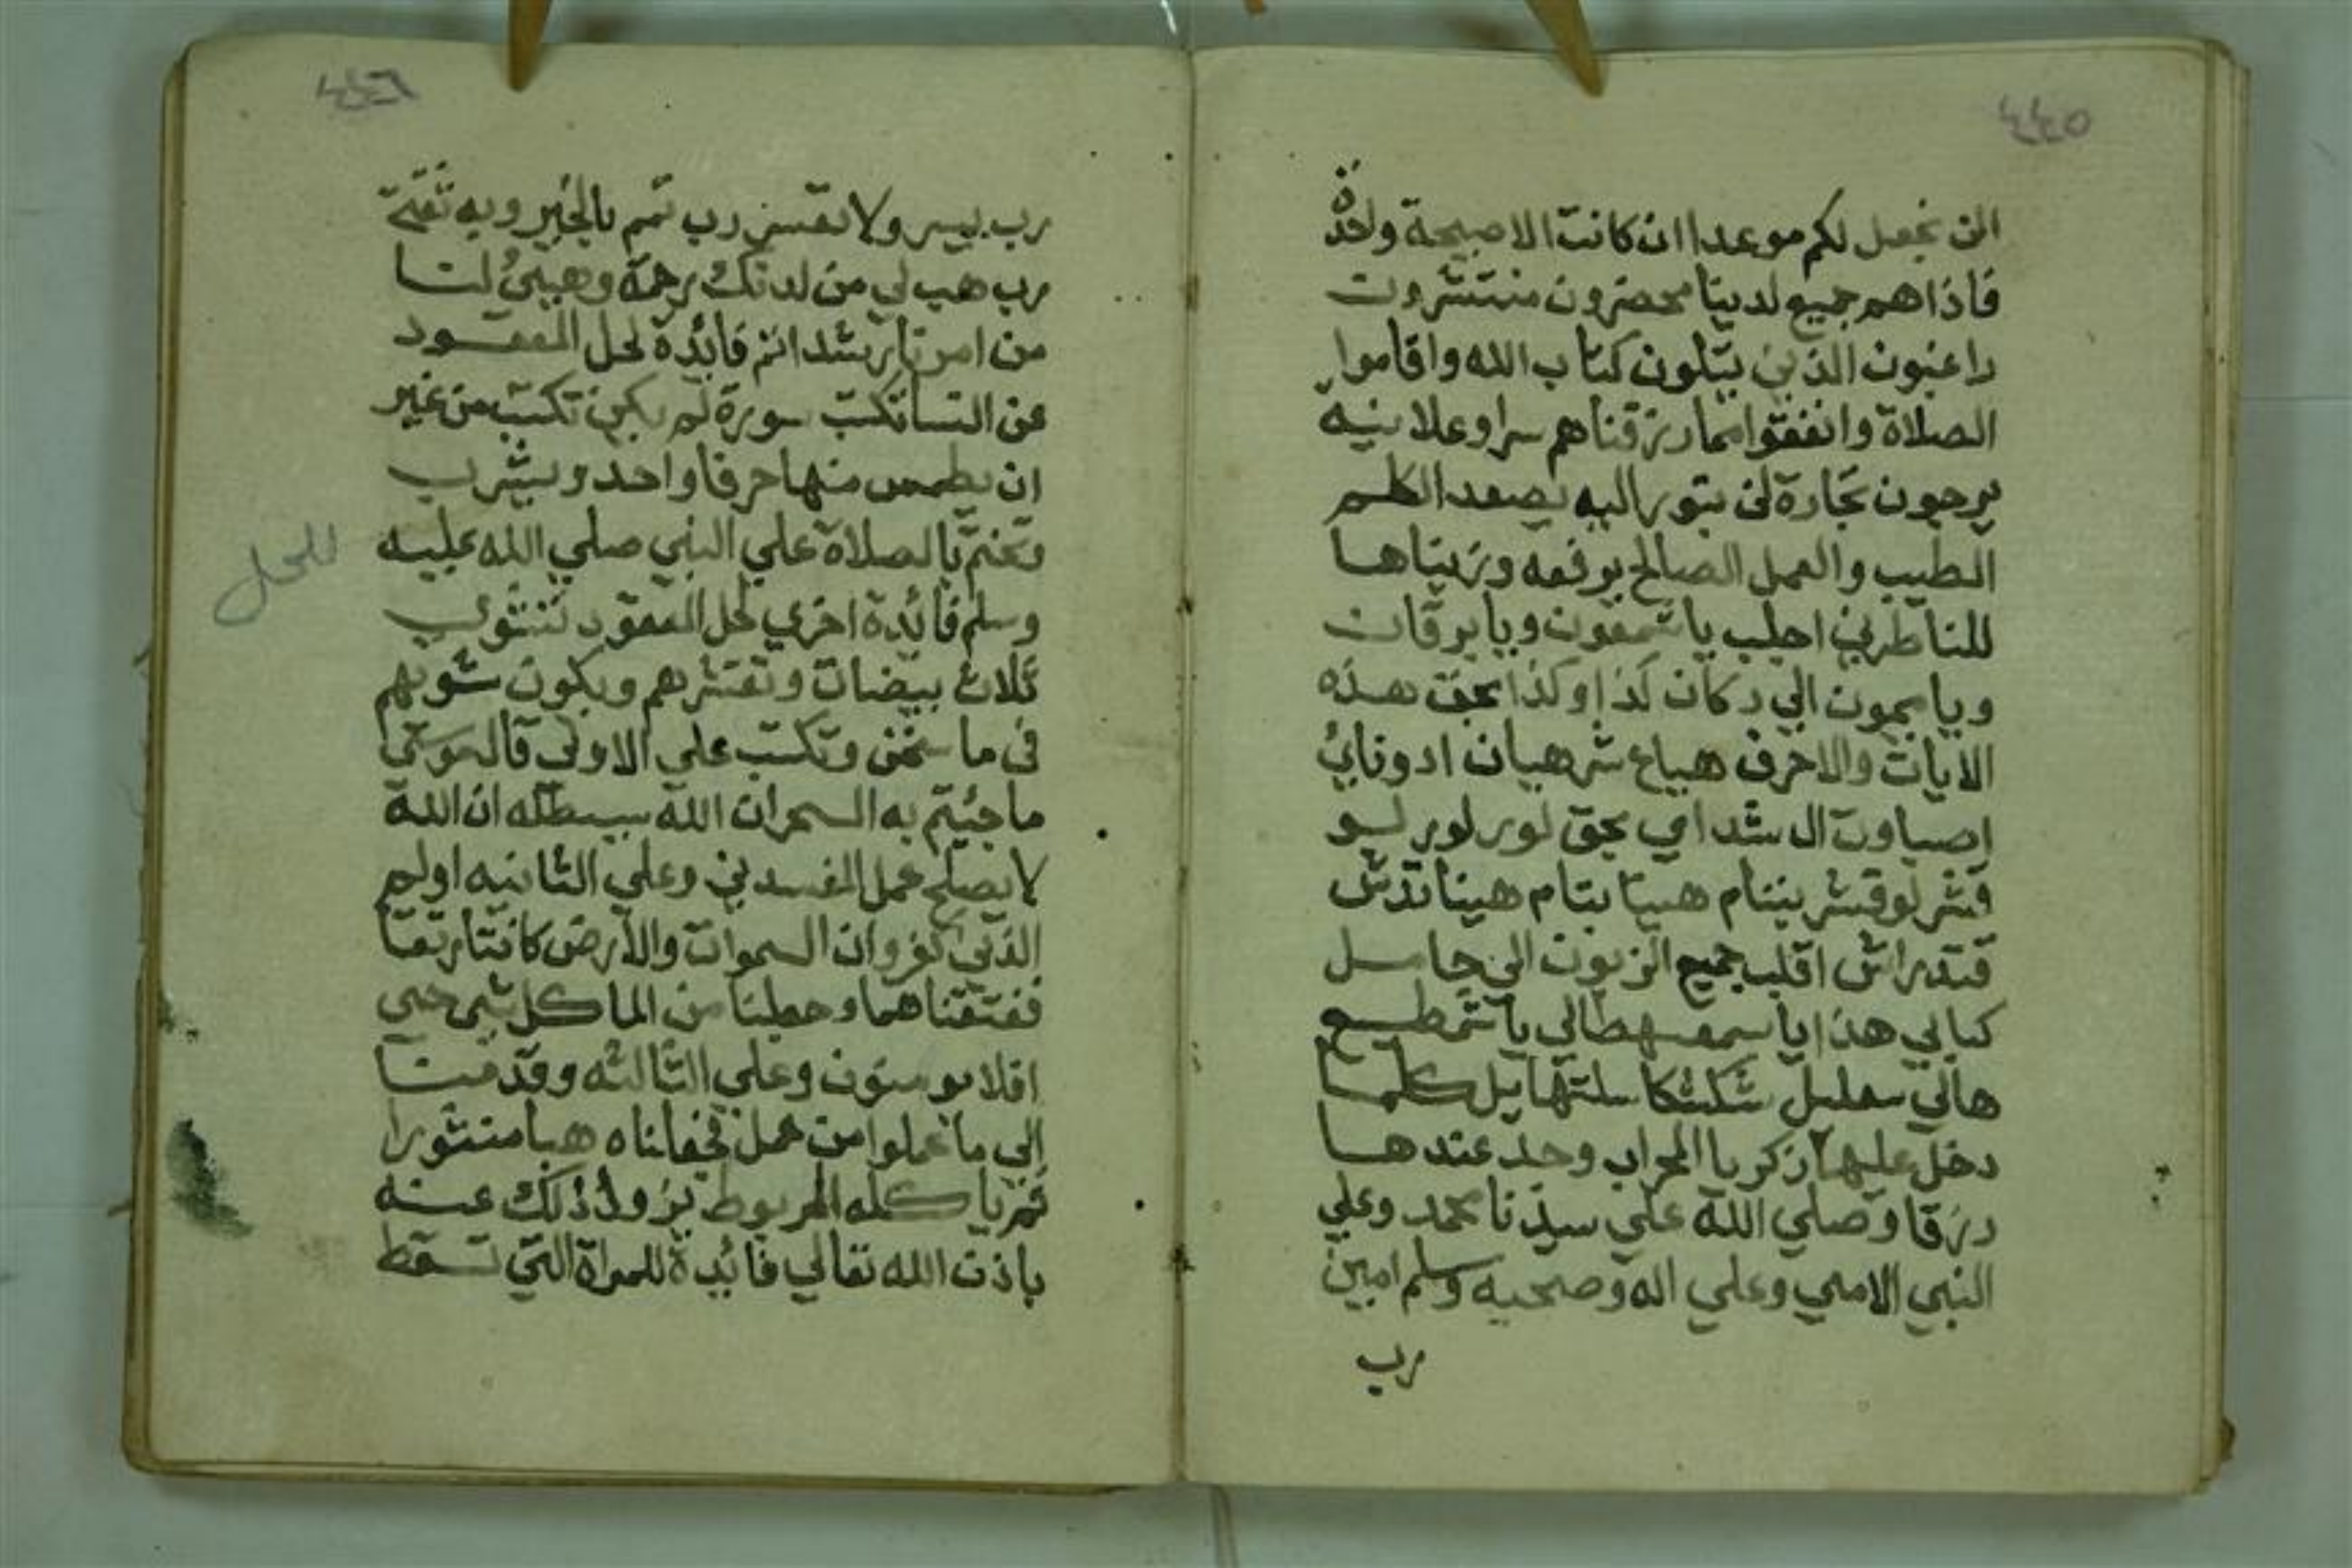 ٤٤٥
الن نجعل لكم موعدا ان كانت الا صيحة واحدة
فاذا هم جميع لدينا محضرون منتشرون
راغبون الذين يتلون كتاب الله واقاموا
الصلاة وانفقوا مما رزقناهم سرا وعلانيه
يرجون تجارة لن تبور اليه يصعد الكلم
الطيب والعمل الصالح يرفعه وزيناها
للناظرين اجلب يا شمعون ويا يرقان
ويا ميمون الي دكان كذا وكذا بحق هذه
الايات والاحرف هياع شرهيان ادوناي
اصباوت ال شداي بحق لور لور لسو
قشر لوقشر بننام هينا بنام هينا
اقلب جميع الزبون الى حامل
كتابي هذا
هالي كلما
دخل عليها زكريا المحراب وجد عندها
رزقا وصلي الله علي سيدنا محمد وعلي
النبي الامي وعلي اله وصحبه وسلم امين
رب
٤٤٦
رب يسر ولا تعسر رب تمم بالخير وبه ثقتي
رب هب لي من لدنك رحمة وهيئ لنا
من امرنا رشدا انتم فائدة لحل المعقود
عن النسا تكتب سورة لم يكن تكتب من غير
ان يطمس منها حرفا واحد ويشرب
وتختم بالصلاة علي النبي صلي الله عليه
وسلم فائدة اخري لحل المعقود تشوي
ثلاث بيضات وتقشرهم ويكون شويهم
في ما سخن وتكتب على الاولى قال موسى
ما جئتم به السحر ان الله سيبطله ان الله
لا يصلح عمل المفسدين وعلي الثانيه اولم ير
الذين كفروا ان السموات والارض كانتا رتقا
ففتقناهما وجعلنا من الما كل شي حي
افلا يومنون وعلي الثالثه وقدمنا
الي ما عملوا من عمل فجعلناه هبا منثورا
ثم ياكله المربوط يزول ذلك عنه
باذن الله تعالي فائدة للمراة التي تسقط
للحل